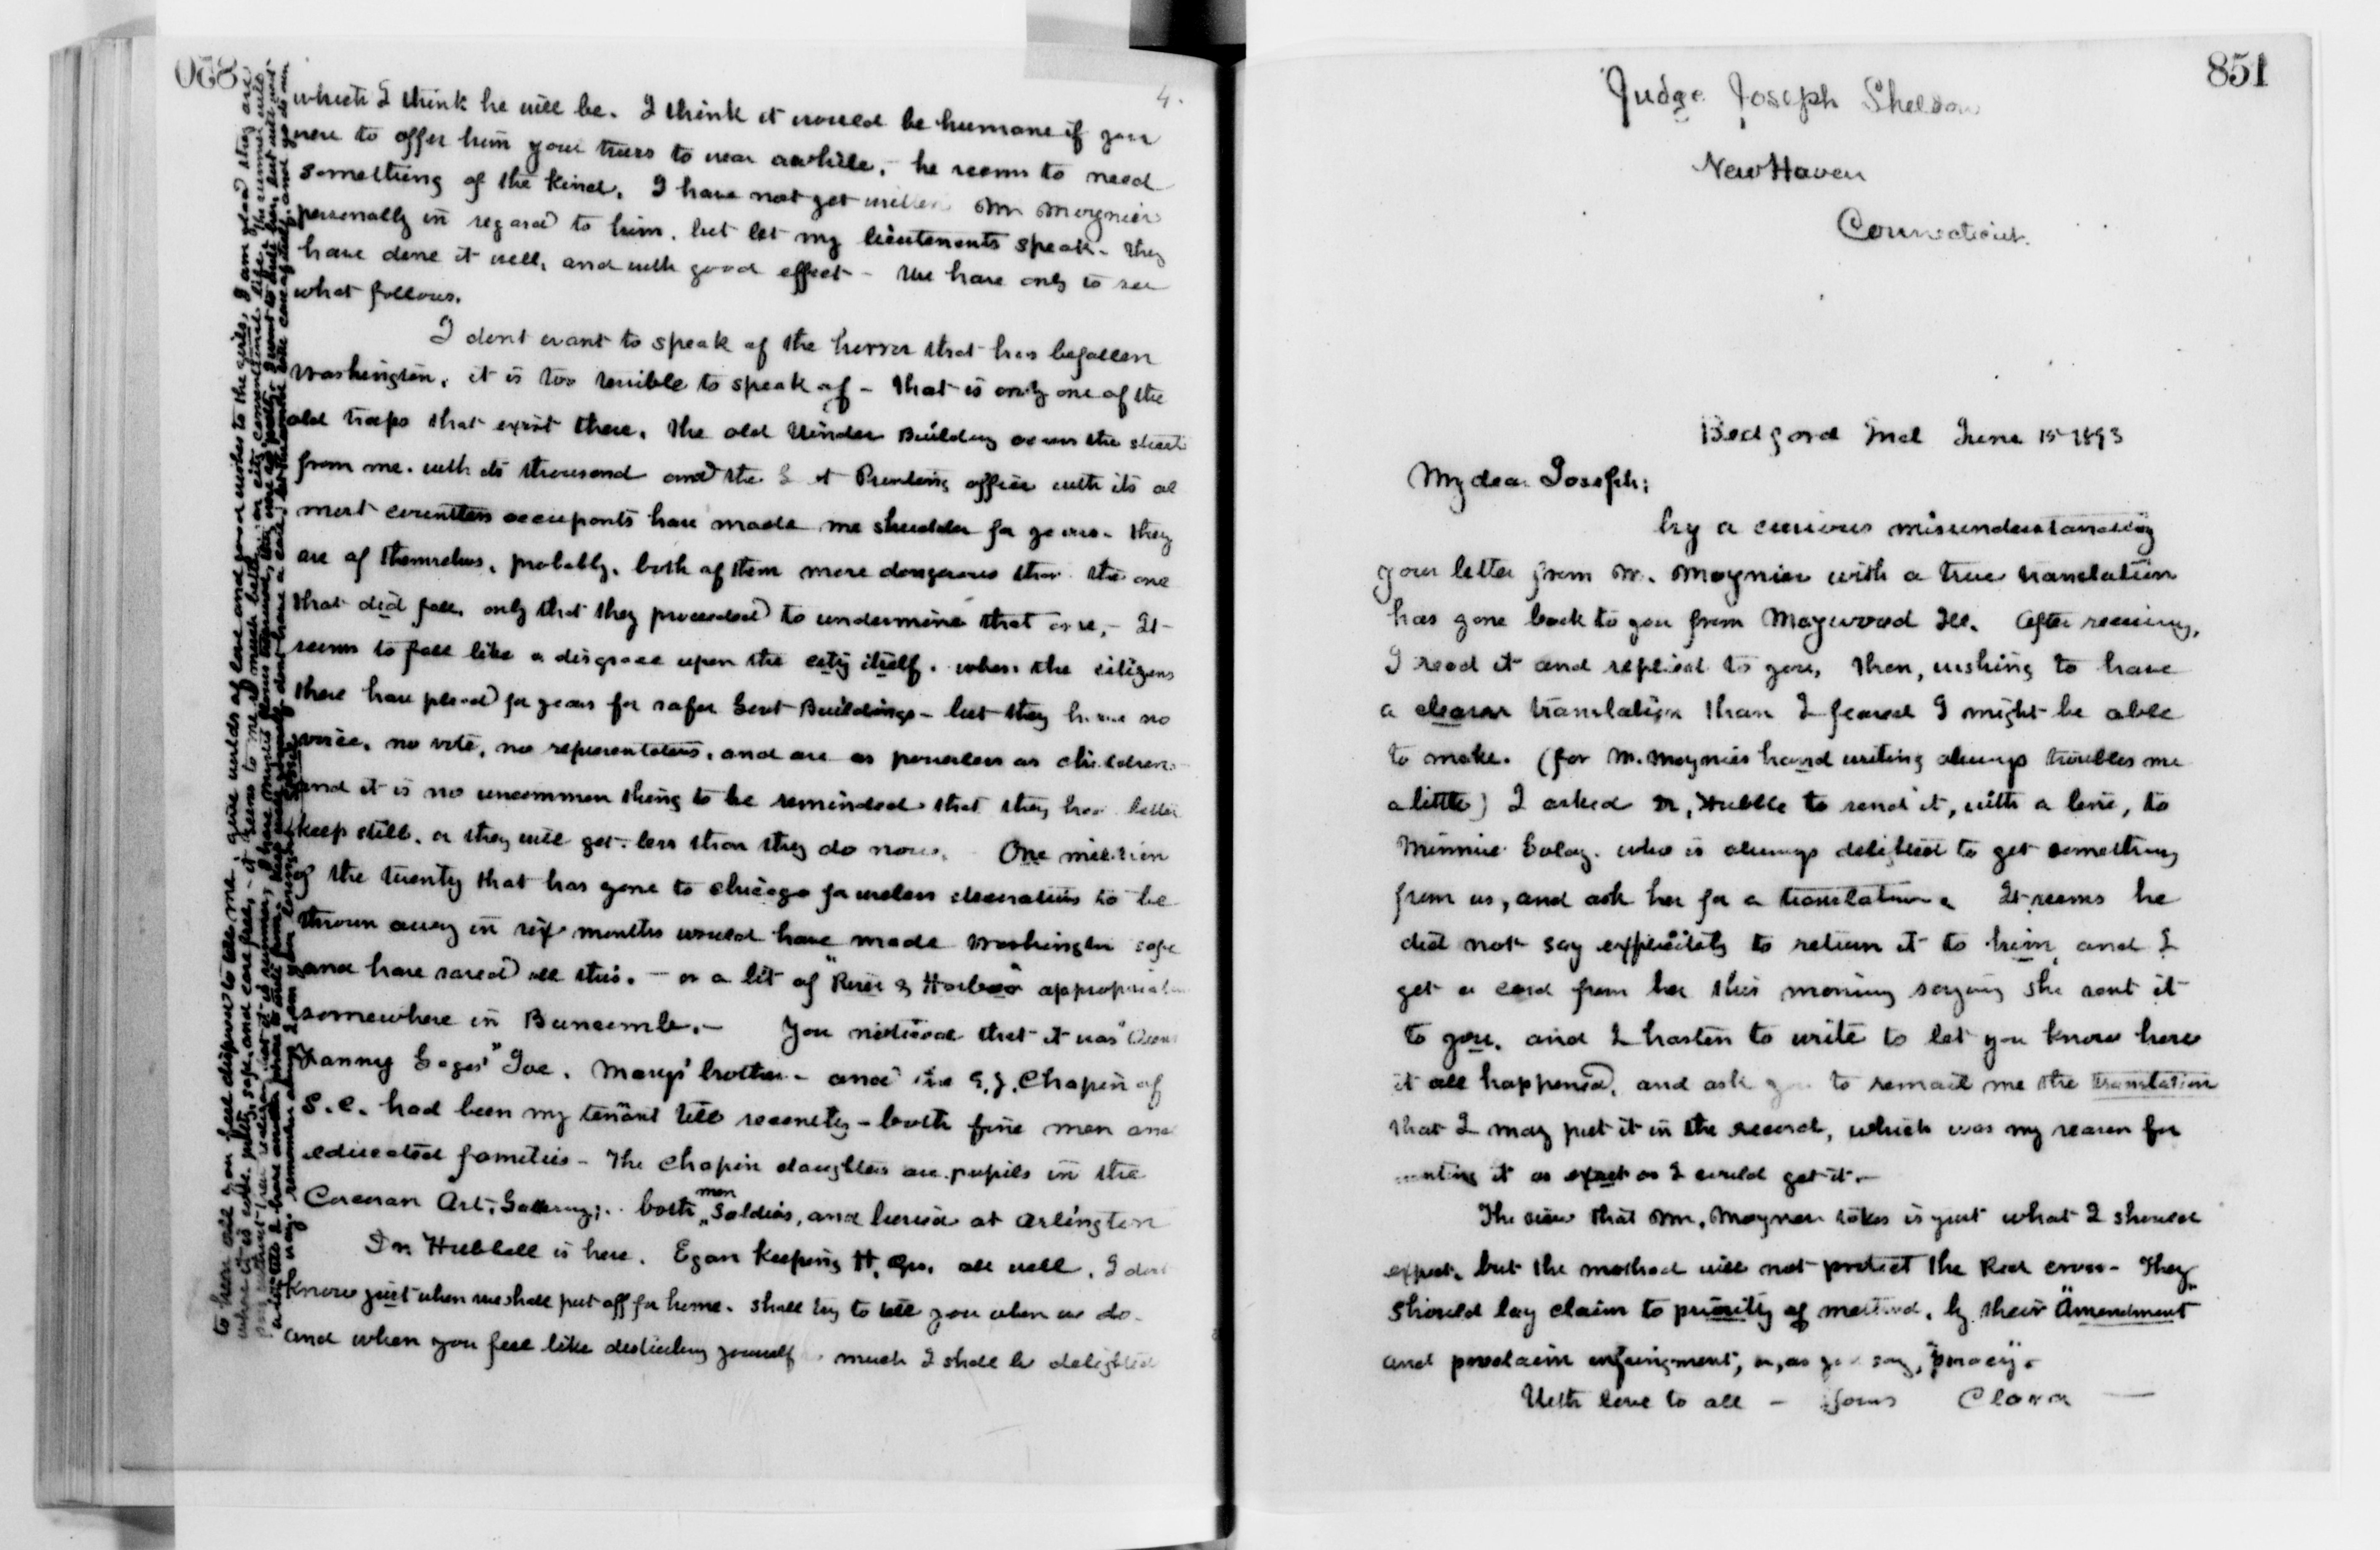 850
4.
which I think he will be. I think it would be humane if you
were to offer him your truss to wear awhile, - he seems to need
something of the kind. I have not yet written Mr Moynier
personally in regard to him, but let my lieutenants speak - they
have done it well, and with good effect - We have only to see
what follows.
I dont want to speak of the horror that has befallen
Washington, it is too terrible to speak of - that is only one of the
old traps that exist there. The old Winder Building across the street
from me. with its thousand and the G Printing office with its al
most countless occupants have made me shudder for years. they
are of themselves, probably, both of them more dangerous than the one
that did fall, only that they proceeded to undermine that one, - It
seems to fall like a disgrace upon the city itself. when the citizens
there have plead for years for safer Govt Buildings - but they have no
voice, no vote, no representation, and are as powerless as children -
and it is no uncommon thing to be reminded that they had better
keep still, or they will get less than they do now. One million
of the twenty that has gone to Chicago for useless decorations to be
thrown away in six months would have made Washington safe
and have saved all this. - or a bit of "River & Harbor" appropriation
somewhere in Buncombe. - You noticed that it was
Fanny Gages" Joe. Marys' brother - and the E. J. Chapin of
S.C. had been my tenant till recently - both fine men and
educated families - The Chapin daughters are pupils in the
Corcoran Art, Gallery; . both men Soldiers, and buried at Arlington
Dr Hubbell is here. Egan keeping H. Qrs. all well. I dont
know just when we shall put off for home. shall try to tell you when we do.
and when you feel like disturbing yourself so much I shall be delighted
to hear all you feel disposed to tell me. give worlds of love and good wishes to the girls, I am glad they are
where it is quiet, safe, and care free, - it seems to me so much
remember always I am your loving
851
Judge Joseph Sheldon
New Haven
Connecticut.
Bedford Ind June 15-1893
My dear Joseph;
by a curious misunderstanding
your letter from M. Moynier with a true translation
has gone back to you from Maywood Ill. After receiving,
I read it and replied to you, then, wishing to have
a clearer translation than I feared I might be able
to make. (for M. Moyniers hand writing always troubles me
a little) I asked Dr. Hubbell to send it, with a line, to
Minnie Golay. who is always delighted to get something
from us, and ask her for a translation. It seems he
did not say explicitely to return it to him, and I
get a card from her this morning saying she sent it
to you, and I hasten to write to let you know how
it all happened, and ask you to remail me the translation
that I may put it in the record, which was my reason for
wanting it as exact as I could get it. -
The view that Mr. Moynier takes is just what I should
expect, but the method will not protect the Red cross - They
should lay claim to priority of method, by their "Amendment"
and proclaim infringment, or, as you say, "piracy" -
With love to all - Yours Clara -